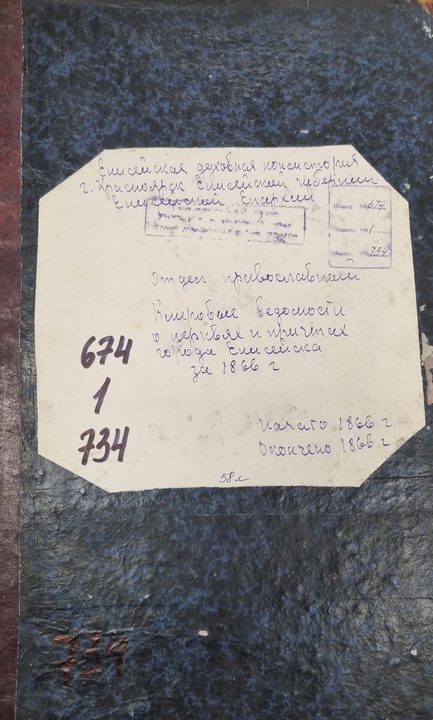 Енисейская духовная консистория
г. Красноярск Енисейской губернии
Енисейской Епархии
674
1
734
Отдел православный
Клировые ведомости
о церквях и причтах
города Енисейска
за 1866 г
674
1
734
Начато 1866 г.
Окончено 1866 г
58 л
734